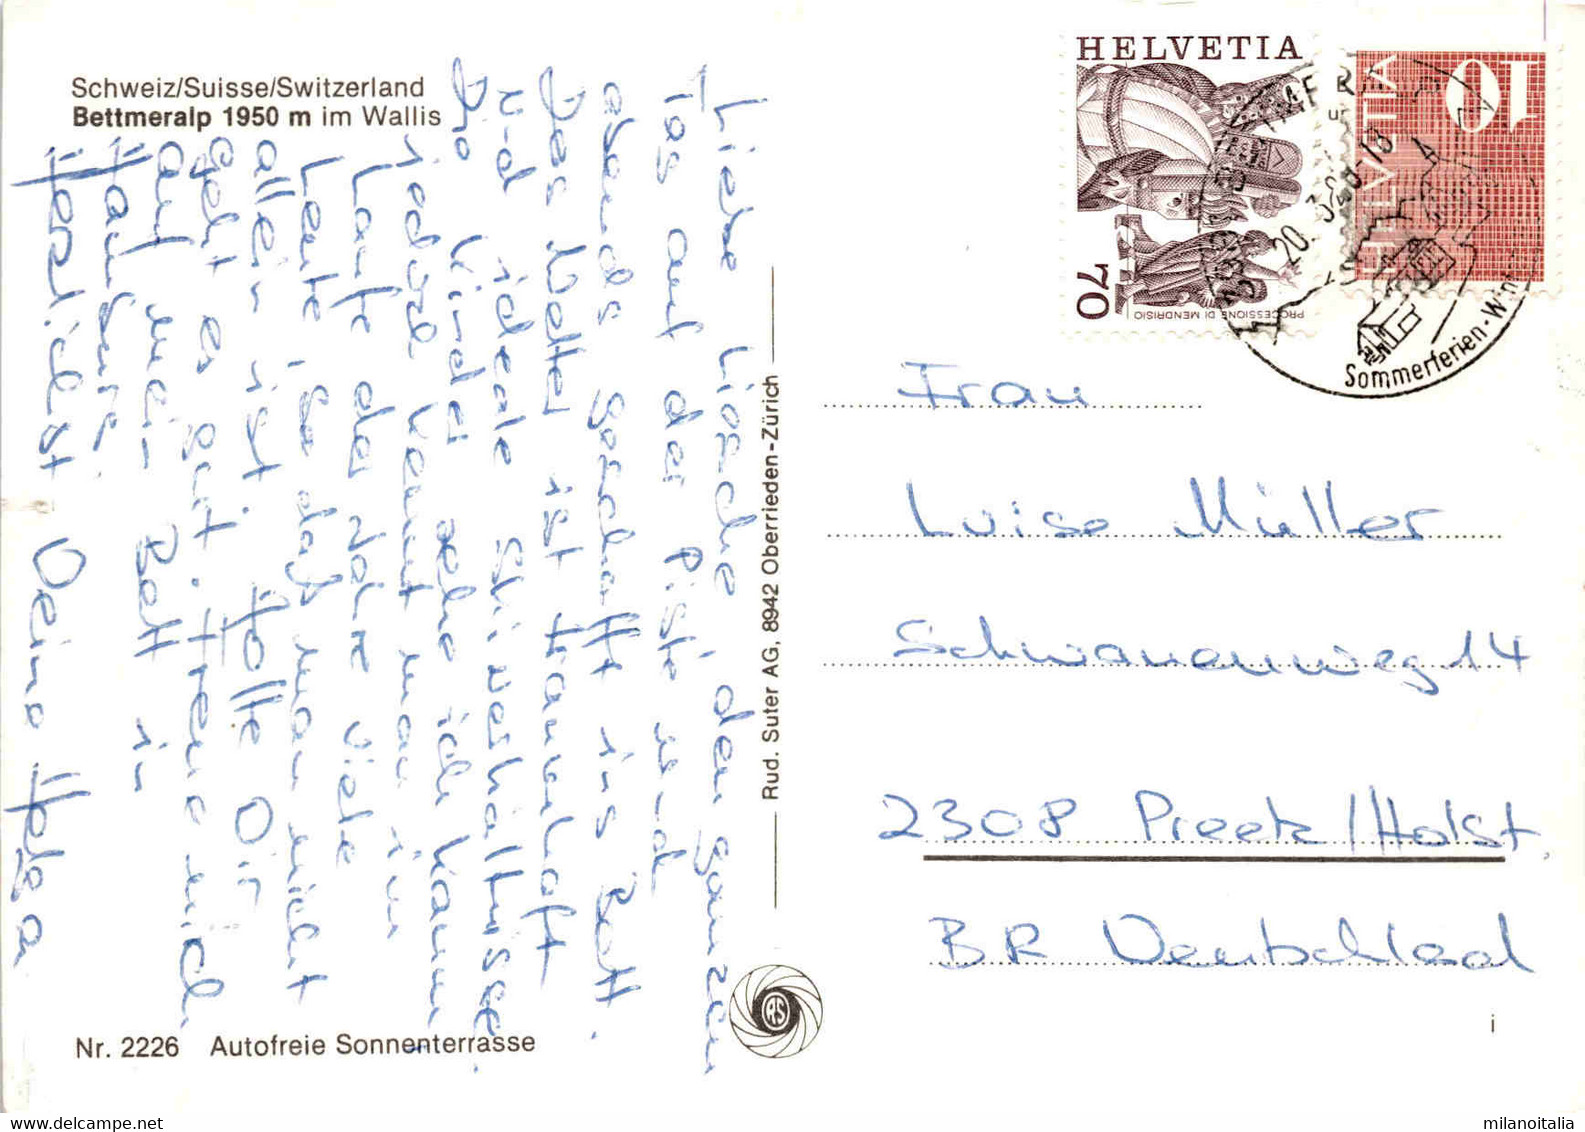 Schweiz/Suisse/Switzerland
Bettmeralp 1950 m im Wallis
Liebe Liesche den ganzen
Tag auf der Piste und
abends geschafft ins Bett.
Das Wetter ist traumhaft
und ideale Skiverhältnisse.
Die Kinder sehe ich kaum,
jedoch kennt man im
Laufe der Jahre viele
Leute, so daß man nicht
allein ist. Hoffe Dir
geht es gut. Freue mich
auf mein Bett in
Hausum.
Herzlichst Deine Helga
Nr. 2226 Autofreie Sonnenterrasse
Rud. Suter AG, 8942 Oberrieden-Zürich
RS
HELVETIA
70
PROCESSIONE DI MENDRISIO
HELVETIA
10
20.
-18
Sommerferien-Win
Frau
Luise Müller
Schwanenweg 14
2308 Preetz/Holst.
BR Deutschland
i
milanoitalia